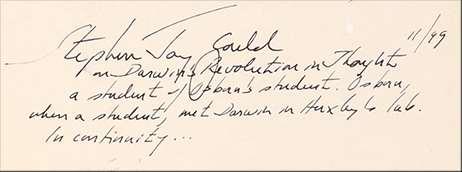 11/99
Stephen Jay Gould
on Darwin's Revolution in Thought
a student of Osborn's student. Osborn,
when a student, met Darwin in Huxley's lab.
In continuity...